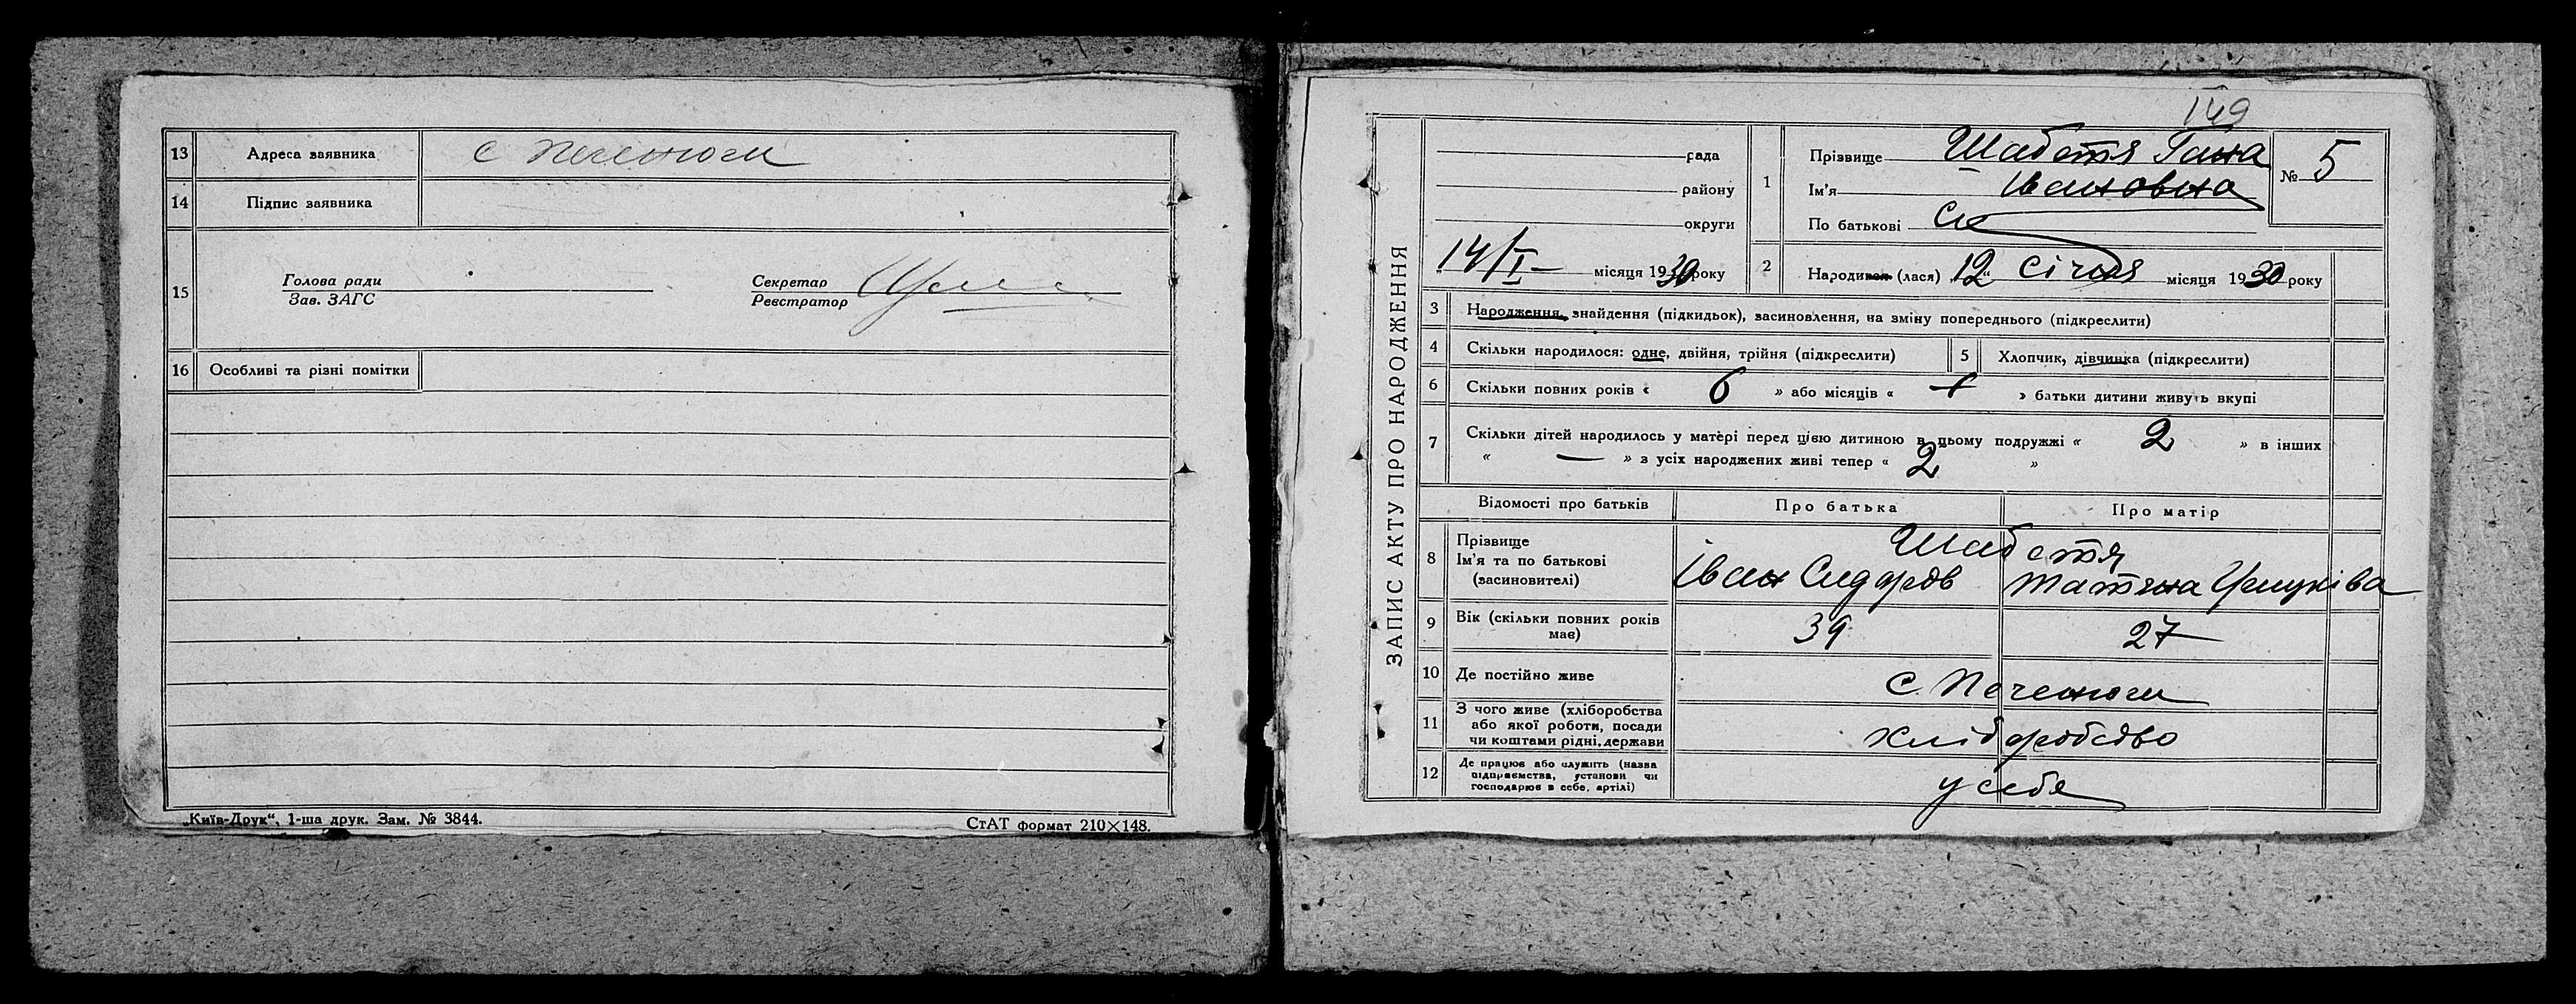 13 Адреса заявника с Печенюги
14 Підпис заявника
15 Голова ради
Зав. ЗАГС
Секретар
Реєстратор
16 Особливі та різні помітки
„Київ-Друк“, 1-ша друк. Зам. № 3844.
СтАТ формат 210×148.
149
ЗАПИС АКТУ ПРО НАРОДЖЕННЯ
рада
району
округи
„14/I– місяця 1930 року
1 Прізвище Шабетя Гана
Ім'я Івановна
По батькові
№ 5
2 Народився (лася) „12“ Січня місяця 1930 року
3 Народження, знайдення (підкидьок), засиновлення, на зміну попереднього (підкреслити)
4 Скільки народилося: одне, двійня, трійня (підкреслити)
5 Хлопчик, дівчинка (підкреслити)
6 Скільки повних років « 6 » або місяців « » батьки дитини живуть вкупі
7 Скільки дітей народилось у матері перед цією дитиною в цьому подружжі « 2 » в інших
« — » з усіх народжених живі тепер « 2 »
Відомості про батьків
Про батька
Про матір
8 Прізвище
Ім'я та по батькові
(засиновителі)
Шабетя
Іван Сидоров
Татяна
9 Вік (скільки повних років
має)
39
27
10 Де постійно живе
с. Печенюги
11 З чого живе (хліборобства
або якої роботи, посади
чи коштами рідні, держави
хліборобство
12 Де працює або служить (назва
підприємства, установи чи
господарює в себе, артілі)
у себе